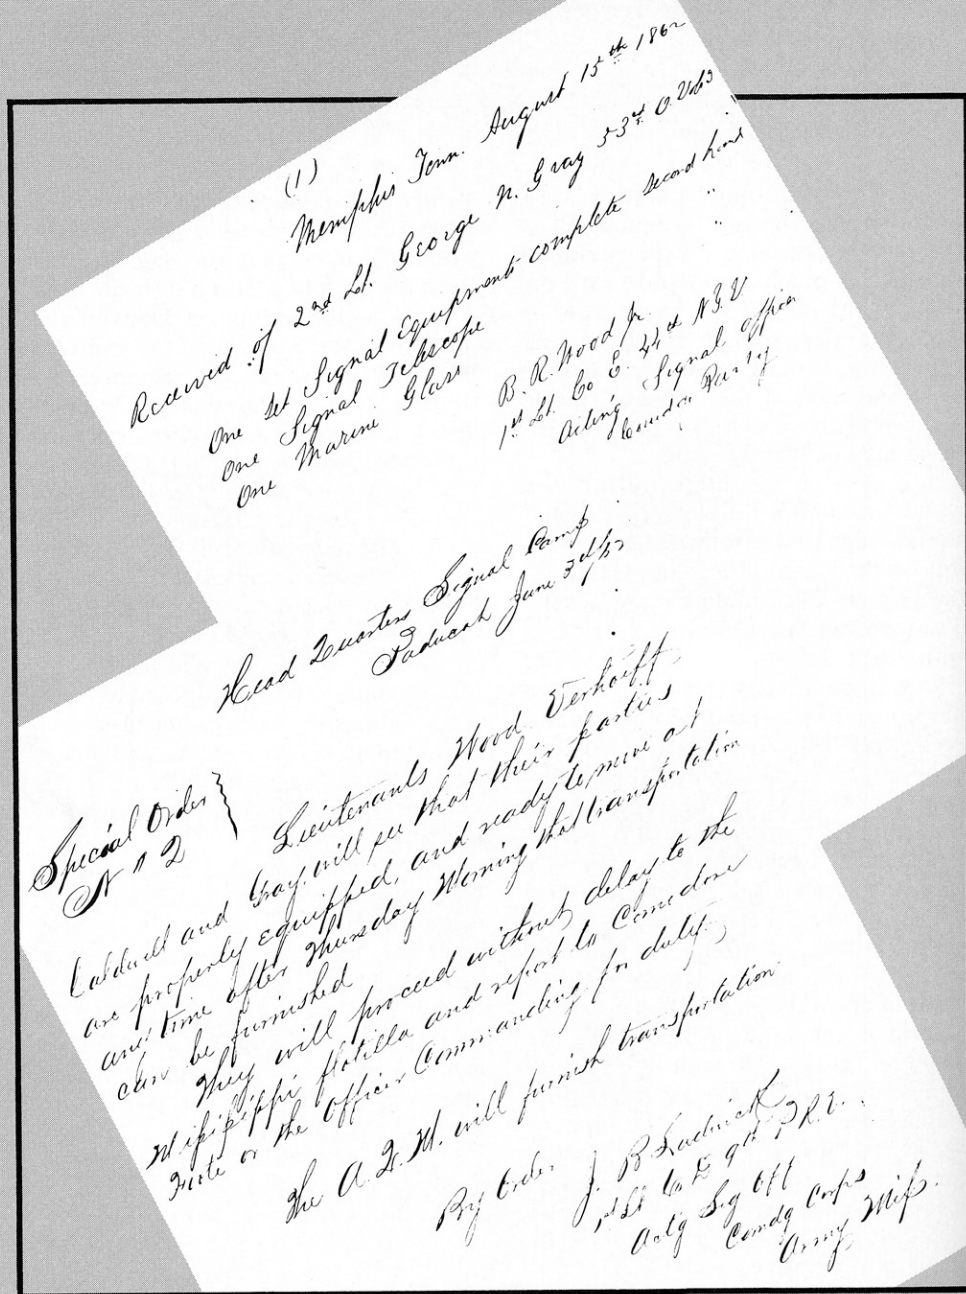 (1)
Memphis Tenn. August 15th 1862
Received of 2nd Lt. George N. Gray 53rd O. Vols
One Set Signal Equipments complete second hand
One Signal Telescope " "
One Marine Glass " "
B. R. Wood Jr.
1st Lt. Co E. 44th N.G.V
Acting Signal Officer
Party
Head Quarters Signal Camp
Paducah June 3d/62
Special Order
N " 2
Lieutenants Wood Verhoeff
Caldwell and Gray will see that their parties
are properly equipped, and ready to move at
any time after Thursday Morning that transportation
can be furnished
They will proceed without delay to the
Mississippi flotilla and report to Comodore
Foote or the Officer Commanding, for duty
The A. Q. M. will furnish transportation
By Order J. B Ludwick
1st Lt Co D 9th P.R.V.
Actg Sig Off
Comdg Corps
Army Miss.